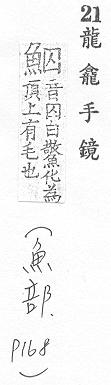 21
龍龕手鏡
䱊音囚白𩺰魚化為
一頂上有毛也
（魚部．
P168）